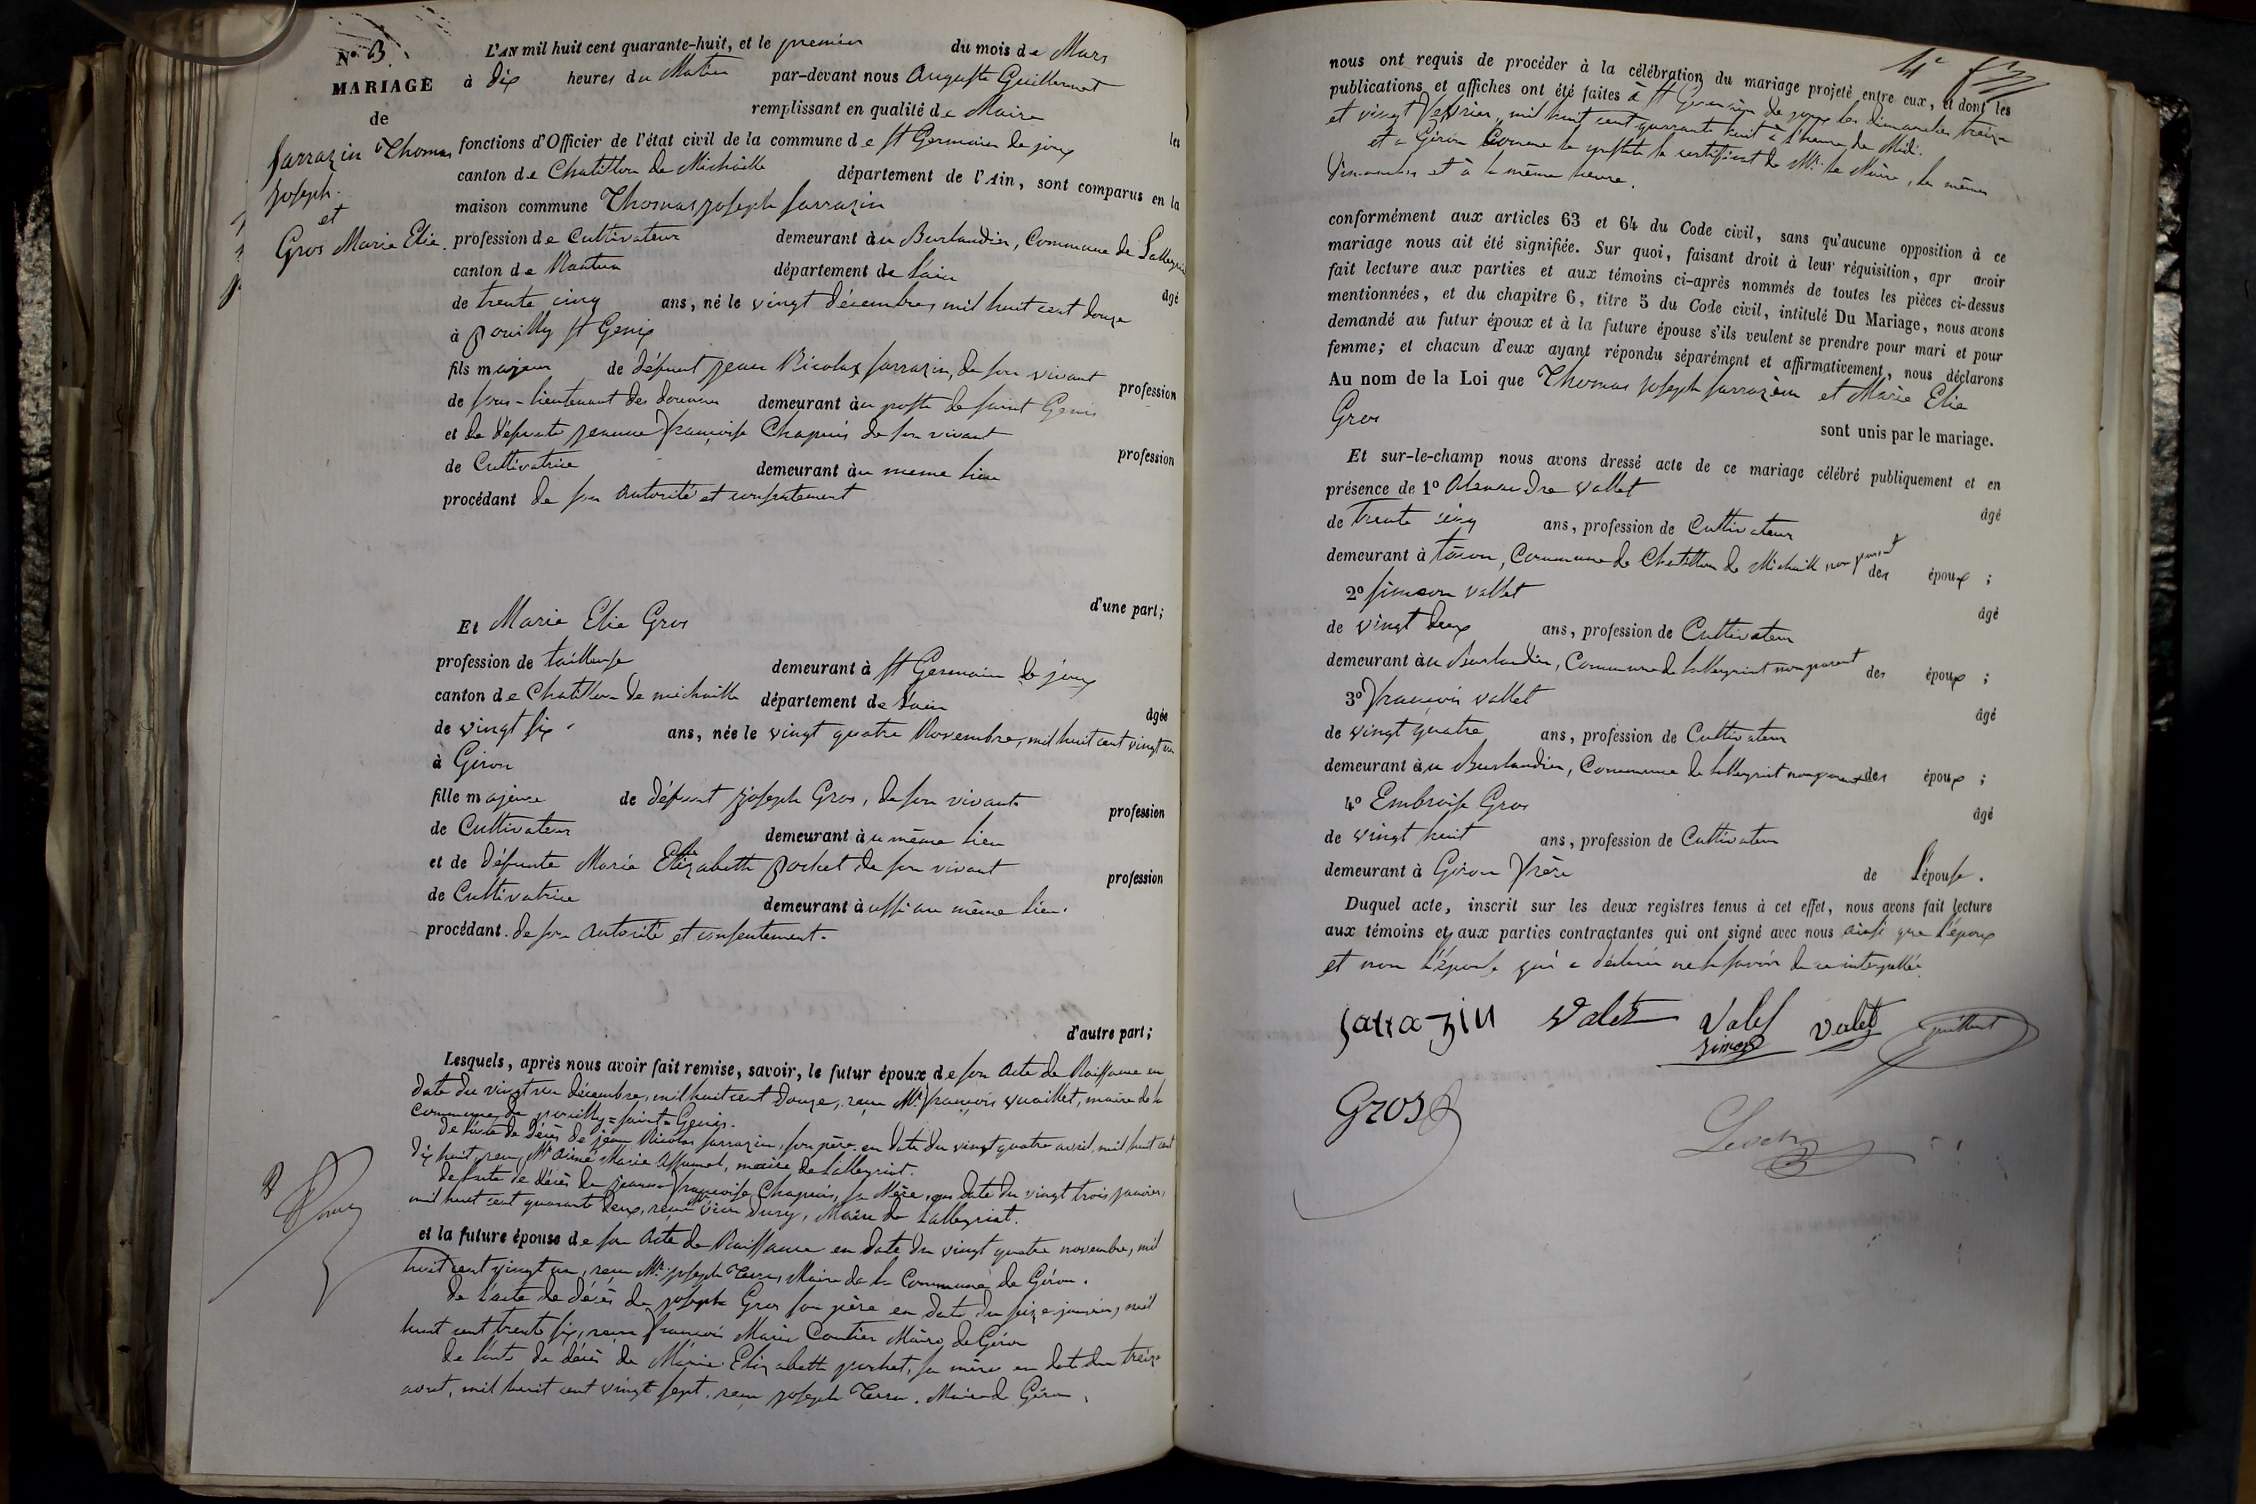 N.o 3.
MARIAGE
de
Sarrazin Thomas
Joseph.
et
Gros Marie Elie.
L'AN mil huit cent quarante-huit, et le premier du mois de Mars
à dix heures du Matin par-devant nous Auguste Guillermet
remplissant en qualité de Maire les
fonctions d'Officier de l'état civil de la commune de St Germain de joux
canton de Chatillon de Michaille département de l'Ain, sont comparus en la
maison commune Thomas joseph Sarrazin
profession de Cultivateur demeurant au Burlandier, Commune de Lalleyriat
canton de Nantua département de Lain âgé
de trente cinq ans, né le vingt décembre, mil huit cent douze
à pouilly St Genix
fils majeur de défunt jean Nicolas Sarrazin, de son vivant profession
de sous-lieutenant des douanes demeurant au poste de saint Genis
et de défunte jeanne françoise Chapuis de son vivant profession
de Cultivatrice demeurant au meme lieu
procédant de son autorité et consentement
d'une part;
Et Marie Elie Gros
profession de tailleuse demeurant à St Germain de joux
canton de Chatillon de michaille département de Lain âgée
de vingt six ans, née le vingt quatre Novembre, mil huit cent vingt un
à Giron
fille majeure de défunt joseph Gros, de son vivant profession
de Cultivateur demeurant au même lieu
et de défunte Marie Elizabeth pochet de son vivant profession
de Cultivatrice demeurant aussi au même lieu.
procédant de son autorité et consentement.
d'autre part;
Lesquels, après nous avoir fait remise, savoir, le futur époux de son acte de Naissance en
date du vingt un décembre, mil huit cent douze, reçu Mr françois vuaillet, maire de la
commune de pouilly-saint-Genis.
de l'acte de décès de jean Nicolas Sarrazin, son père en date du vingt quatre avril, mil huit cent
dix huit, reçu Mr Aimé Marie maire de Lalleyriat.
de l'acte de décès de jeanne françoise Chapuis, sa Mère, en date du vingt trois janvier,
mil huit cent quarante deux, reçu Maire de Lalleyriat.
et la future épouse de son Acte de Naissance en date du vingt quatre novembre, mil
huit cent vingt un, reçu Mr joseph Maire de la Commune de Giron.
de l'acte de décès de joseph Gros son père en date du seize janvier, mil
huit cent trente six, reçu françois Marie Maire de Giron
de l'acte de décès de Marie Elizabeth pochet, sa mère en date du treize
avril, mil huit cent vingt sept, reçu joseph Maire de Giron.
4e
nous ont requis de procéder à la célébration du mariage projeté entre eux, et dont les
publications et affiches ont été faites à St Germain de joux les dimanches treize
et vingt février, mil huit cent quarante huit à l'heure de Midi.
et à Giron Comme le constate le certificat de Mr le Maire, les mêmes
dimanches et à la même heure.
conformément aux articles 63 et 64 du Code civil, sans qu'aucune opposition à ce
mariage nous ait été signifiée. Sur quoi, faisant droit à leur réquisition, apr avoir
fait lecture aux parties et aux témoins ci-après nommés de toutes les pièces ci-dessus
mentionnées, et du chapitre 6, titre 5 du Code civil, intitulé Du Mariage, nous avons
demandé au futur époux et à la future épouse s'ils veulent se prendre pour mari et pour
femme; et chacun d'eux ayant répondu séparément et affirmativement, nous déclarons
Au nom de la Loi que Thomas joseph Sarrazin et Marie Elie
Gros
sont unis par le mariage.
Et sur-le-champ nous avons dressé acte de ce mariage célébré publiquement et en
présence de 1º Alexandre vallet âgé
de trente cinq ans, profession de Cultivateur
demeurant à Commune de Chatillon de Michaille non parent des époux;
2º Simeon vallet âgé
de vingt deux ans, profession de Cultivateur
demeurant au Burlandier, Commune de Lalleyriat non parent des époux;
3º françois vallet âgé
de vingt quatre ans, profession de Cultivateur
demeurant au Burlandier, Commune de Lalleyriat non parent des époux;
4º Embroise Gros âgé
de vingt huit ans, profession de Cultivateur
demeurant à Giron frère de l'épouse.
Duquel acte, inscrit sur les deux registres tenus à cet effet, nous avons fait lecture
aux témoins et aux parties contractantes qui ont signé avec nous ainsi que l'époux
et non l'épouse qui a déclaré ne le savoir de ce interpellée.
Sarrazin Valet Valet Valet
Simeon
Gros